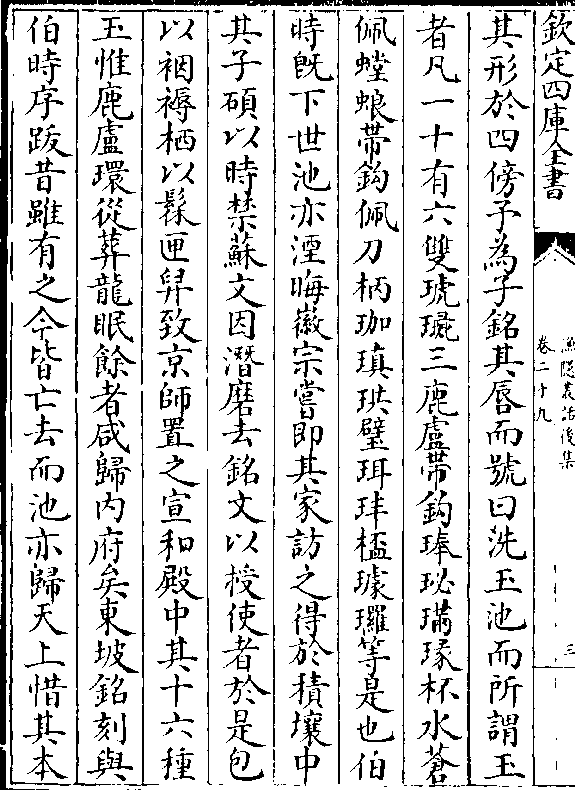 欽定四庫全書
漁隠叢話後集
卷二十九
三
其形於四傍予為子銘其唇而號曰洗玉池而所謂玉
者凡一十有六雙琥璩三鹿盧帶鉤琫珌璊瑑杯水蒼
佩螳蜋帶鈎佩刀柄珈瑱珙璧珥玤櫺璩瓘等是也伯
時旣下世池亦湮晦徽宗嘗即其家訪之得於積壤中
其子碩以時禁蘇文因潛磨去銘文以授使者於是包
以裀褥栖以髹匣舁致京師置之宣和殿中其十六種
玉惟鹿盧環從葬龍眠餘者咸歸内府矣東坡銘刻與
伯時序跋昔雖有之今皆亡去而池亦歸天上惜其本